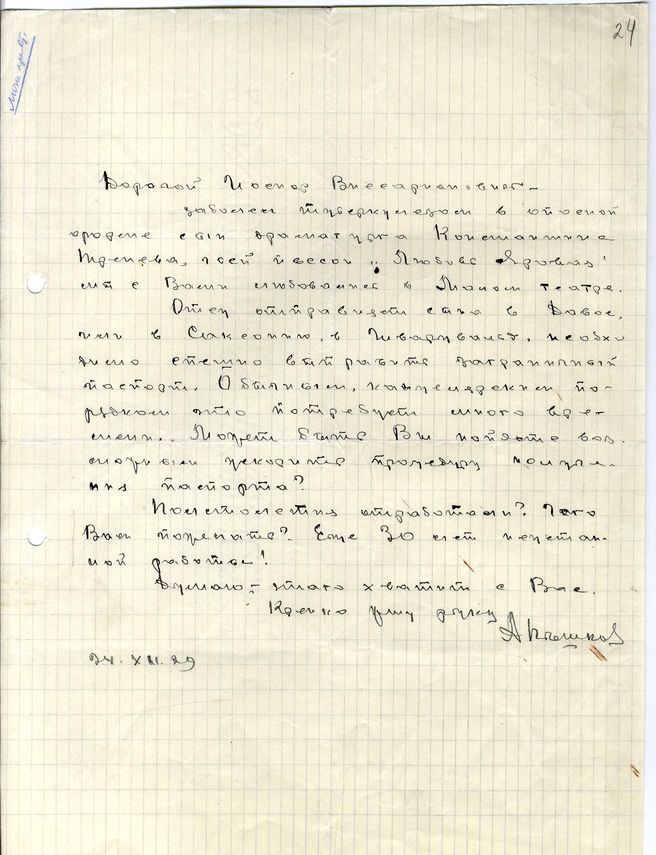 24
Дорогой Иосиф Виссарионович –
заболел туберкулезом в опасной
форме сын драматурга Константина
Тренева, чьей пьесой „Любовь Яровая“
мы с Вами любовались в Малом театре.
Отец отправляет сына в Давос,
или в Саксонию, в Шварцвальд, необхо
димо спешно выправить заграничный
паспорт. Обычным, канцелярским по-
рядком это потребует много вре-
мени. Может быть Вы найдете воз
можным ускорить процедуру получе-
ния паспорта?
Полстолетия отработали? Чего
Вам пожелать? Еще 30 лет неустан-
ной работы!
Думаю – этого хватит с Вас.
Крепко жму руку
А Пешков
24. XII. 29